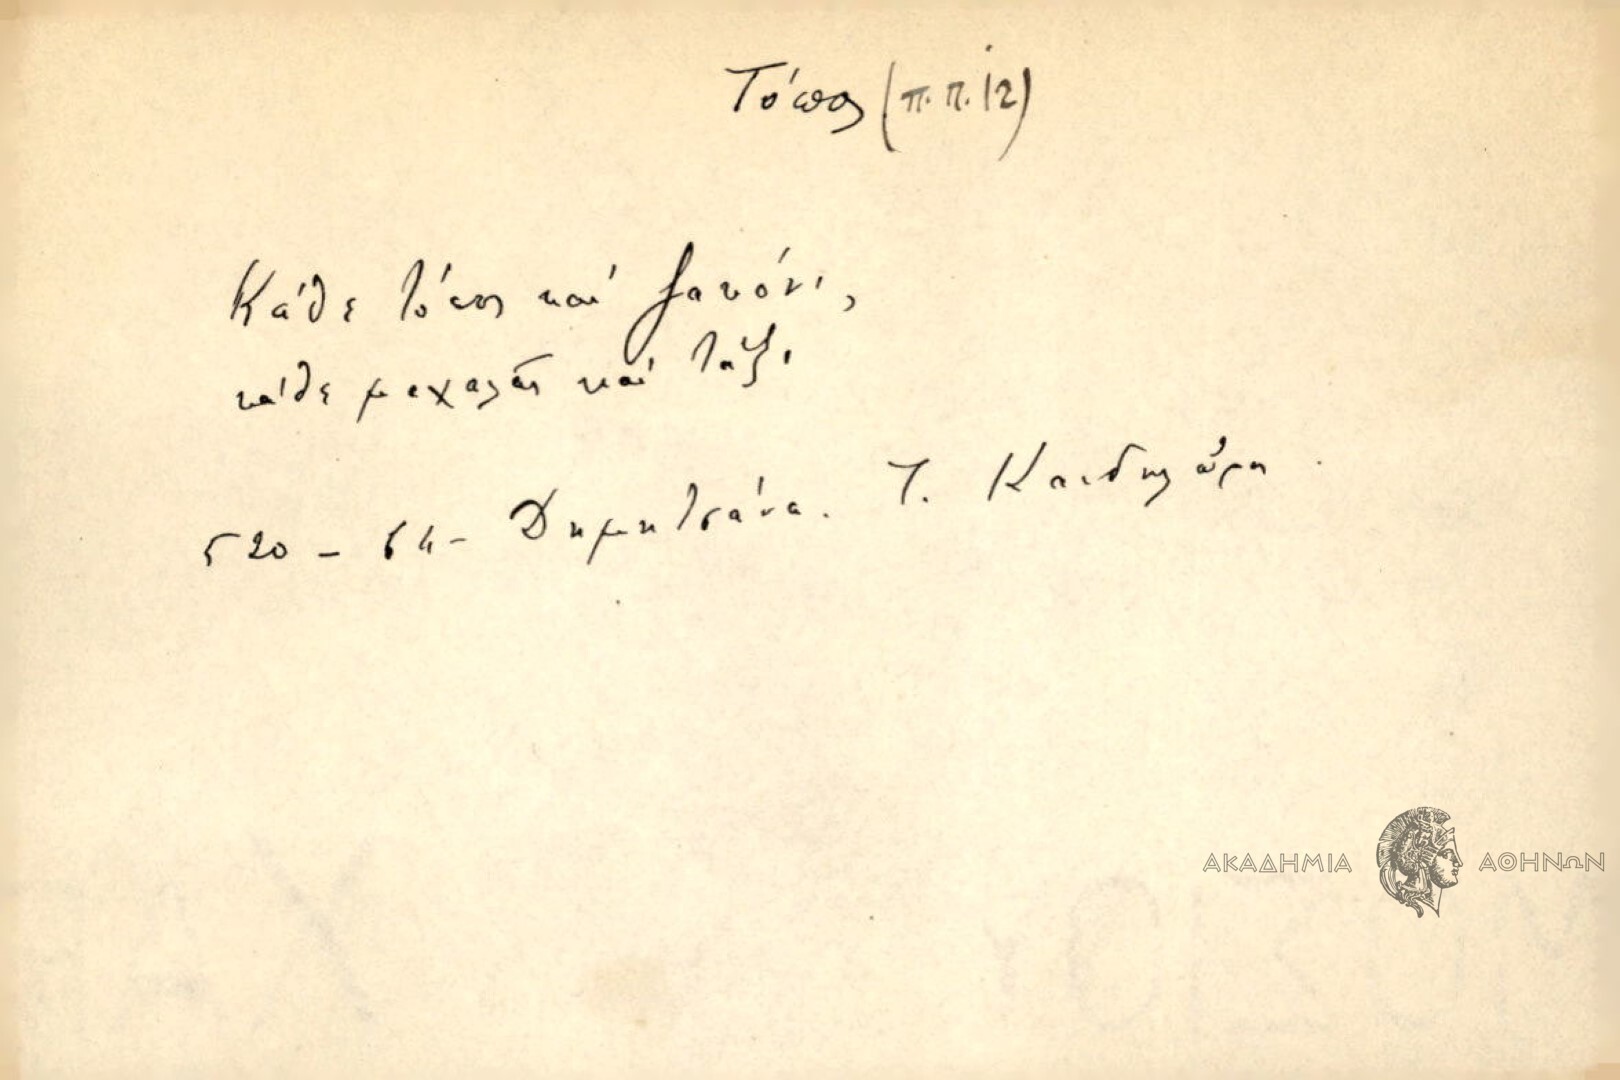 Τόπος (π. π. 12)
Κάθε τόπος καί ζακόνι,
κάθε μαχαλᾶς καί τάξι
520 - 64 - Δημητσάνα. Τ. Κανδηλώρη.
ΑΚΑΔΗΜΙΑ ΑΘΗΝΩΝ